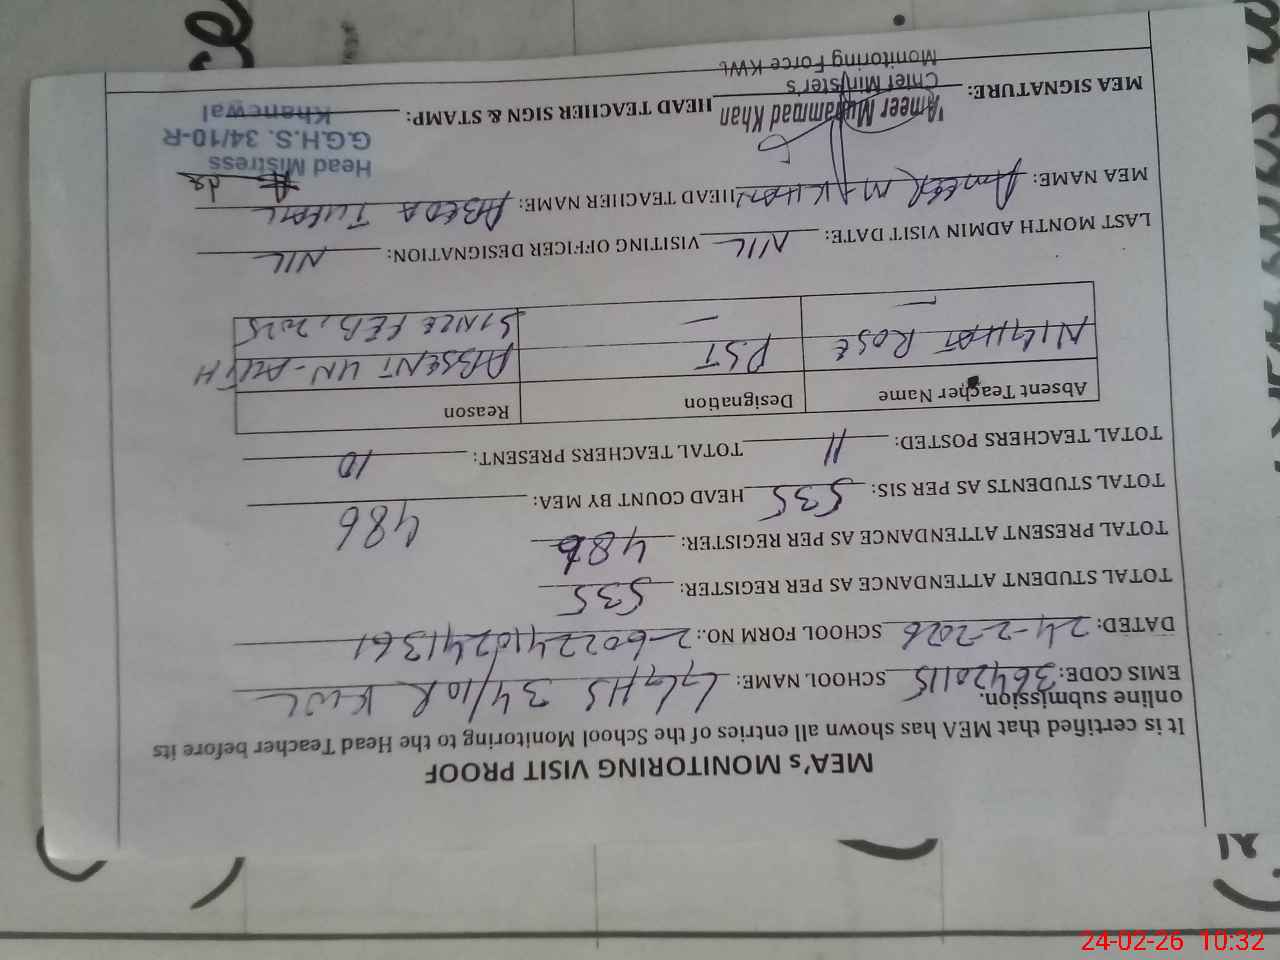 MEA's MONITORING VISIT PROOF
It is certified that MEA has shown all entries of the School Monitoring to the Head Teacher before its
online submission.
EMIS CODE: 36420115 SCHOOL NAME: GGHS 34/10R KWL
DATED: 24-2-2026 SCHOOL FORM NO.:
TOTAL STUDENT ATTENDANCE AS PER REGISTER: 535
TOTAL PRESENT ATTENDANCE AS PER REGISTER: 486
TOTAL STUDENTS AS PER SIS: 535 HEAD COUNT BY MEA: 486
TOTAL TEACHERS POSTED: 11 TOTAL TEACHERS PRESENT: 10
Absent Teacher Name Designation Reason
NIGHAT ROSE PST ABSENT UN-AUTH
— — SINCE FEB, 2025
LAST MONTH ADMIN VISIT DATE: NIL VISITING OFFICER DESIGNATION: NIL
MEA NAME: AMEER M. KHAN HEAD TEACHER NAME: ABEDA TUFAIL
MEA SIGNATURE: HEAD TEACHER SIGN & STAMP:
Ameer Muhammad Khan
Chief Minister's
Monitoring Force KWL
Head Mistress
G.G.H.S. 34/10-R
Khanewal
24-02-26 10:32